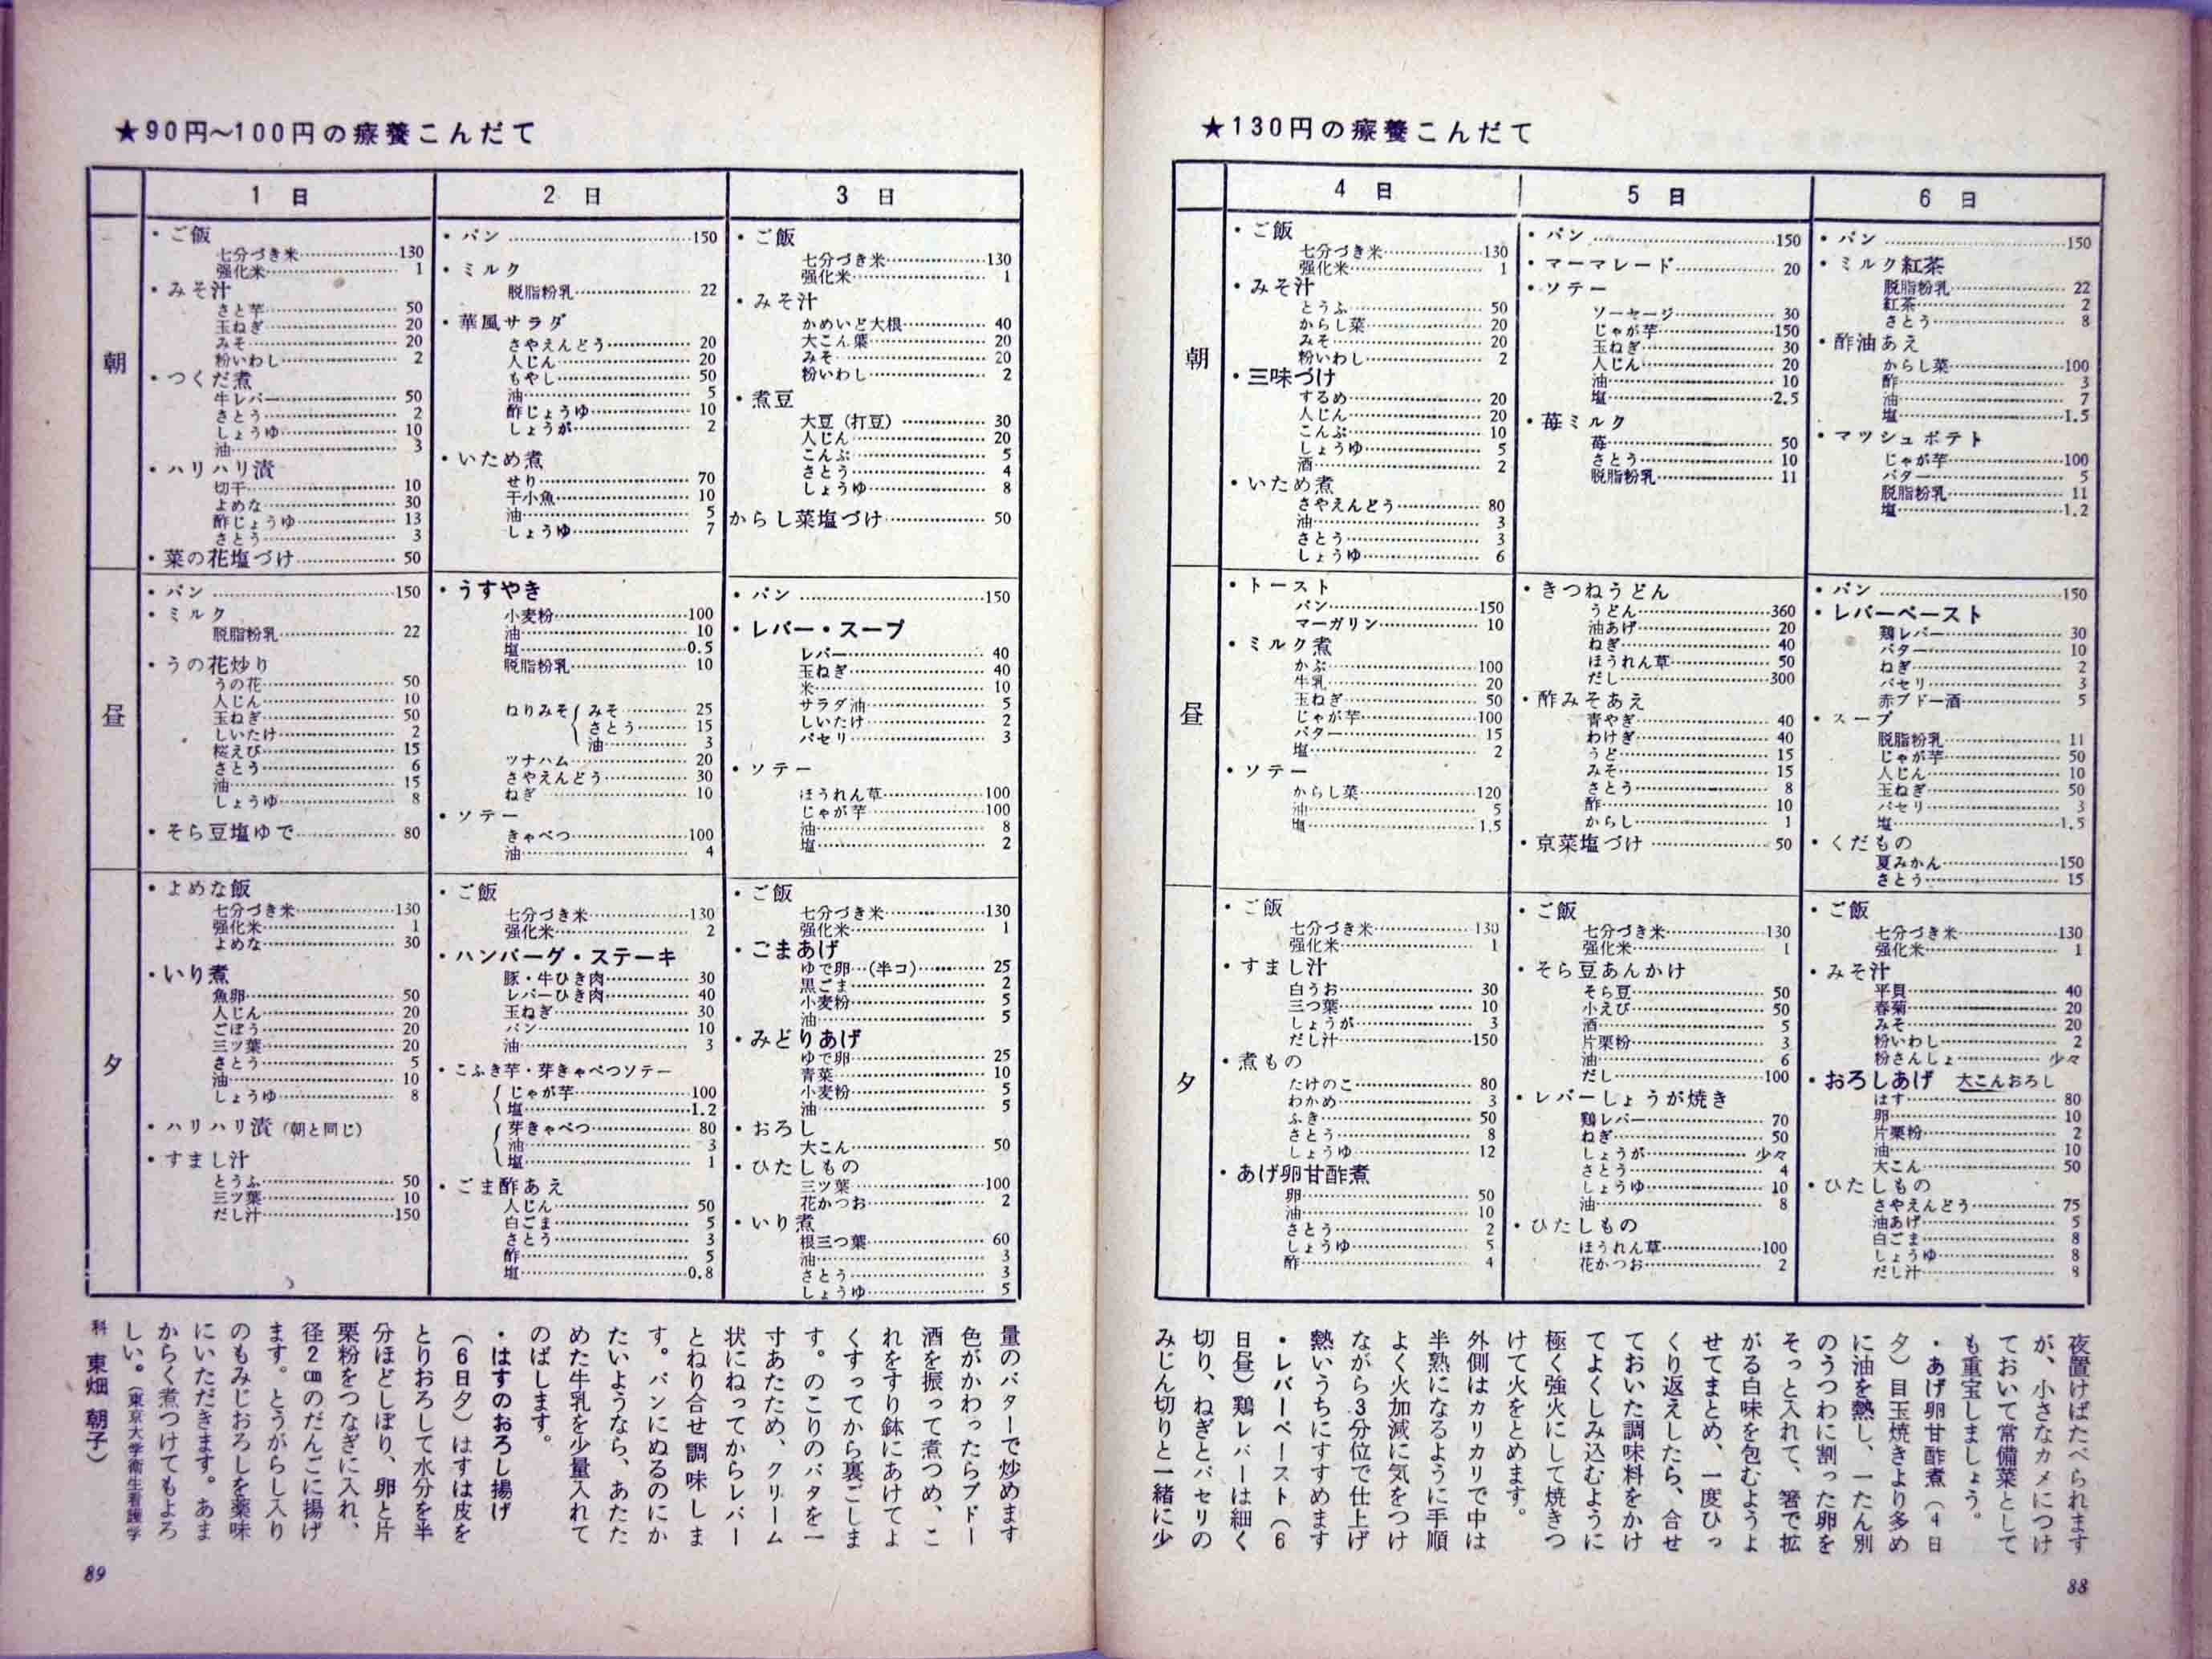 ★130円の療養こんだて
4 日
5 日
6 日
朝
・ご飯
七分づき米……130
強化米……1
・みそ汁
とうふ……50
からし菜……20
みそ……20
粉いわし……2
・三味づけ
するめ……20
人じん……20
こんぶ……10
しょうゆ……5
酒……2
・いため煮
さやえんどう……80
油……3
さとう……3
しょうゆ……6
・パン……150
・マーマレード……20
・ソテー
ソーセージ……30
じゃが芋……150
玉ねぎ……30
人じん……20
油……10
塩……2.5
・苺ミルク
苺……50
さとう……10
脱脂粉乳……11
・パン……150
・ミルク紅茶
脱脂粉乳……22
紅茶……2
さとう……8
・酢油あえ
からし菜……100
酢……3
油……7
塩……1.5
・マッシュポテト
じゃが芋……100
バター……5
脱脂粉乳……11
塩……1.2
昼
・トースト
パン……150
マーガリン……10
・ミルク煮
かぶ……100
牛乳……20
玉ねぎ……50
じゃが芋……100
バター……15
塩……2
・ソテー
からし菜……120
油……5
塩……1.5
・きつねうどん
うどん……360
油あげ……20
ねぎ……40
ほうれん草……50
だし……300
・酢みそあえ
青やぎ……40
わけぎ……40
うど……15
みそ……15
さとう……8
酢……10
からし……1
・京菜塩づけ……50
・パン……150
・レバーペースト
鶏レバー……30
バター……10
ねぎ……2
パセリ……3
赤ブドー酒……5
・スープ
脱脂粉乳……11
じゃが芋……50
人じん……10
玉ねぎ……50
パセリ……3
塩……1.5
・くだもの
夏みかん……150
さとう……15
夕
・ご飯
七分づき米……130
強化米……1
・すまし汁
白うお……30
三つ葉……10
しょうが……3
だし汁……150
・煮もの
たけのこ……80
わかめ……3
ふき……50
さとう……8
しょうゆ……12
・あげ卵甘酢煮
卵……50
油……10
さとう……2
しょうゆ……5
酢……4
・ご飯
七分づき米……130
強化米……1
・そら豆あんかけ
そら豆……50
小えび……50
酒……5
片栗粉……3
油……6
だし……100
・レバーしょうが焼き
鶏レバー……70
ねぎ……50
しょうが……少々
さとう……4
しょうゆ……10
油……8
・ひたしもの
ほうれん草……100
花かつお……2
・ご飯
七分づき米……130
強化米……1
・みそ汁
平貝……40
春菊……20
みそ……20
粉いわし……2
粉さんしょ……少々
・おろしあげ 大こんおろし
はす……80
卵……10
片栗粉……2
油……10
大こん……50
・ひたしもの
さやえんどう……75
油あげ……5
白ごま……8
しょうゆ……8
だし汁……8
夜置けばたべられます
が、小さなカメにつけ
ておいて常備菜として
も重宝しましょう。
・あげ卵甘酢煮（4日
夕）目玉焼きより多め
に油を熱し、一たん別
のうつわに割った卵を
そっと入れて、箸で拡
がる白味を包むようよ
せてまとめ、一度ひっ
くり返えしたら、合せ
ておいた調味料をかけ
てよくしみ込むように
極く強火にして焼きつ
けて火をとめます。
外側はカリカリで中は
半熟になるように手順
よく火加減に気をつけ
ながら3分位で仕上げ
熱いうちにすすめます
・レバーペースト（6
日昼）鶏レバーは細く
切り、ねぎとパセリの
みじん切りと一緒に少
88
★90円～100円の療養こんだて
1 日
2 日
3 日
朝
・ご飯
七分づき米……130
強化米……1
・みそ汁
さと芋……50
玉ねぎ……20
みそ……20
粉いわし……2
・つくだ煮
牛レバー……50
さとう……2
しょうゆ……10
油……3
・ハリハリ漬
切干……10
よめな……30
酢じょうゆ……13
さとう……3
・菜の花塩づけ……50
・パン……150
・ミルク
脱脂粉乳……22
・華風サラダ
さやえんどう……20
人じん……20
もやし……50
油……5
酢じょうゆ……10
しょうが……2
・いため煮
せり……70
干小魚……10
油……5
しょうゆ……7
・ご飯
七分づき米……130
強化米……1
・みそ汁
かめいど大根……40
大こん葉……20
みそ……20
粉いわし……2
・煮豆
大豆（打豆）……30
人じん……20
こんぶ……5
さとう……4
しょうゆ……8
からし菜塩づけ……50
昼
・パン……150
・ミルク
脱脂粉乳……22
・うの花炒り
うの花……50
人じん……10
玉ねぎ……50
しいたけ……2
桜えび……15
さとう……6
油……15
しょうゆ……8
・そら豆塩ゆで……80
・うすやき
小麦粉……100
油……10
塩……0.5
脱脂粉乳……10
ねりみそ{みそ……25
さとう……15
油……3
ツナハム……20
さやえんどう……30
ねぎ……10
・ソテー
きゃべつ……100
油……4
・パン……150
・レバー・スープ
レバー……40
玉ねぎ……40
米……10
サラダ油……5
しいたけ……2
パセリ……3
・ソテー
ほうれん草……100
じゃが芋……100
油……8
塩……2
夕
・よめな飯
七分づき米……130
強化米……1
よめな……30
・いり煮
魚卵……50
人じん……20
ごぼう……20
三ツ葉……20
さとう……5
油……10
しょうゆ……8
・ハリハリ漬（朝と同じ）
・すまし汁
とうふ……50
三ツ葉……10
だし汁……150
・ご飯
七分づき米……130
強化米……2
・ハンバーグ・ステーキ
豚・牛ひき肉……30
レバーひき肉……40
玉ねぎ……30
パン……10
油……3
・こふき芋・芽きゃべつソテー
{じゃが芋……100
塩……1.2
{芽きゃべつ……80
油……3
塩……1
・ごま酢あえ
人じん……50
白ごま……5
さとう……3
酢……5
塩……0.8
・ご飯
七分づき米……130
強化米……1
・ごまあげ
ゆで卵…（半コ）……25
黒ごま……2
小麦粉……5
油……5
・みどりあげ
ゆで卵……25
青菜……10
小麦粉……5
油……5
・おろし
大こん……50
・ひたしもの
三ツ葉……100
花かつお……2
・いり煮
根三つ葉……60
油……3
さとう……3
しょうゆ……5
量のバターで炒めます
色がかわったらブドー
酒を振って煮つめ、こ
れをすり鉢にあけてよ
くすってから裏ごしま
す。のこりのバタを一
寸あたため、クリーム
状にねってからレバー
とねり合せ調味しま
す。パンにぬるのにか
たいようなら、あたた
めた牛乳を少量入れて
のばします。
・はすのおろし揚げ
（6日夕）はすは皮を
とりおろして水分を半
分ほどしぼり、卵と片
栗粉をつなぎに入れ、
径2㎝のだんごに揚げ
ます。とうがらし入り
のもみじおろしを薬味
にいただきます。あま
からく煮つけてもよろ
しい。（東京大学衛生看護学
科 東畑 朝子）
89